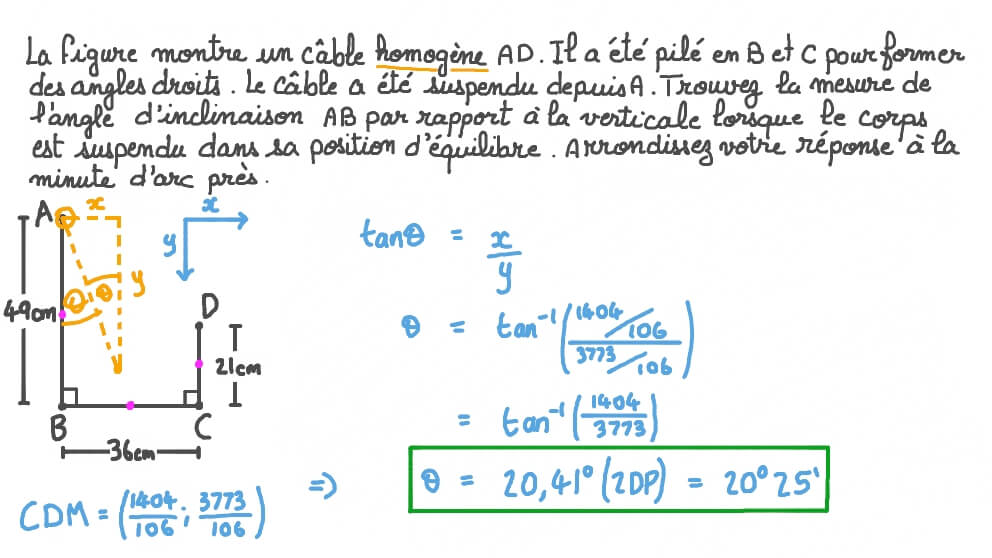 La figure montre un câble homogène AD. Il a été pilé en B et C pour former
des angles droits. Le câble a été suspendu depuis A. Trouvez la mesure de
l'angle d'inclinaison AB par rapport à la verticale lorsque le corps
est suspendu dans sa position d'équilibre. Arrondissez votre réponse à la
minute d'arc près.
A
x
x
y
θ
θ
y
49cm
D
21cm
B
C
36cm
CDM = (1404/106 ; 3773/106)
tanθ = x/y
θ = tan⁻¹((1404/106)/(3773/106))
= tan⁻¹(1404/3773)
⇒ θ = 20,41° (2DP) = 20° 25'